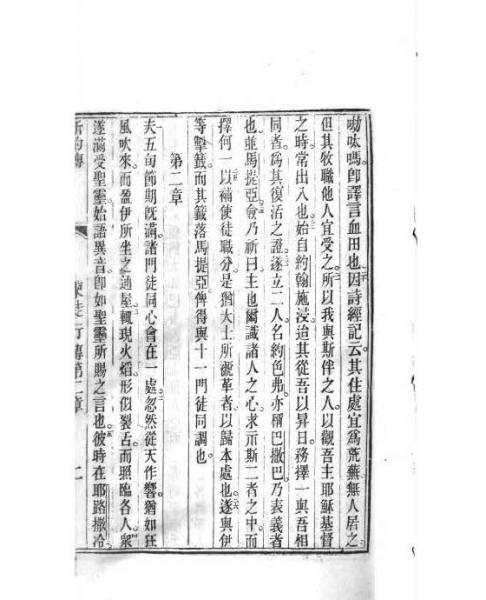 呦呔嗎即譯言血田也因詩經記云其住處宜爲荒蕪無人居之
但其牧職他人宜受之所以我與斯伴之人以觀吾主耶穌基督
之時常出入也始自約翰施浸迨其從吾以昇日務擇一與吾相
同者爲其復活之證遂立二人名約色弗亦稱巴撒巴乃表義者
也並馬提亞會乃祈曰主也爾識諸人之心求示斯二者之中而
擇何一以補使徒職分是猶大士所罷革者以歸本處也遂與伊
等掣籤而其籤落馬提亞俾得與十一門徒同調也
第二章
夫五旬節期旣滿諸門徒同心會在一處忽然從天作響猶如狂
風吹來而盈伊所坐之通屋輒現火熖形似裂舌而照臨各人衆
遂滿受聖靈始語異音卽如聖靈所賜之言也彼時在耶路撒冷
行傳第二章
二